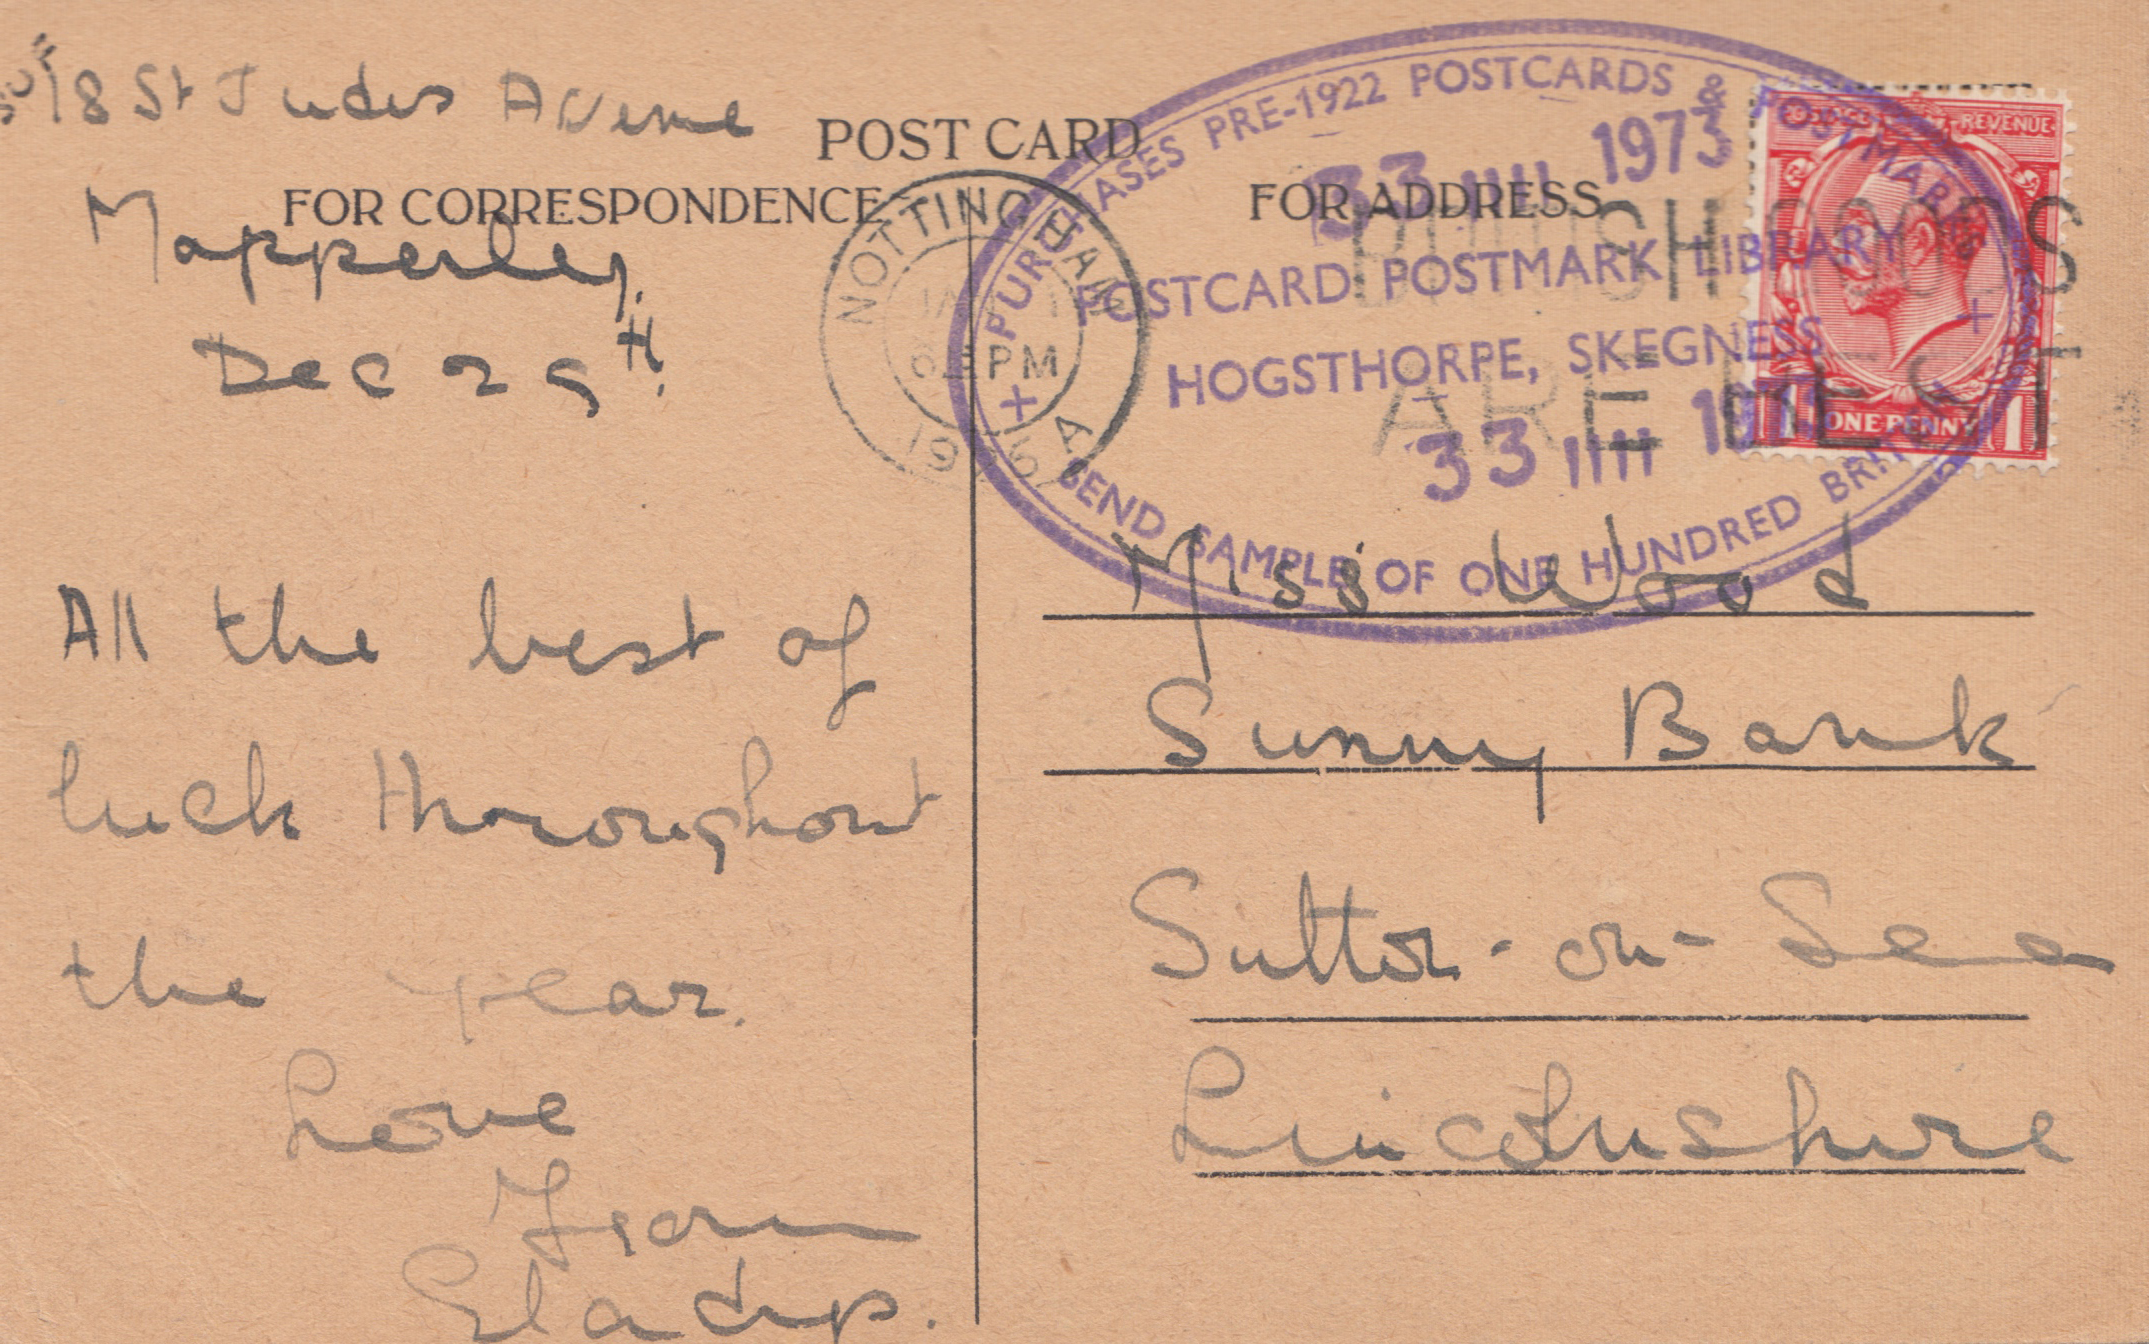 18 St Judes Avenue
POST CARD
FOR CORRESPONDENCE
Mapperley.
Dec 29th.
All the best of
luck throughout
the year.
Love
From
Gladys.
NOTTINGHAM
6 PM
19
A
PURCHASES PRE-1922 POSTCARDS & POSTMARKS
33 1973
FOR ADDRESS
BRITISH GOODS
ARE BEST
POSTCARD POSTMARK LIBRARY
HOGSTHORPE, SKEGNESS
33
SEND SAMPLE OF ONE HUNDRED
POSTAGE REVENUE
1 ONE PENNY 1
Miss Wood
Sunny Bank
Sutton-on-Sea
Lincolnshire